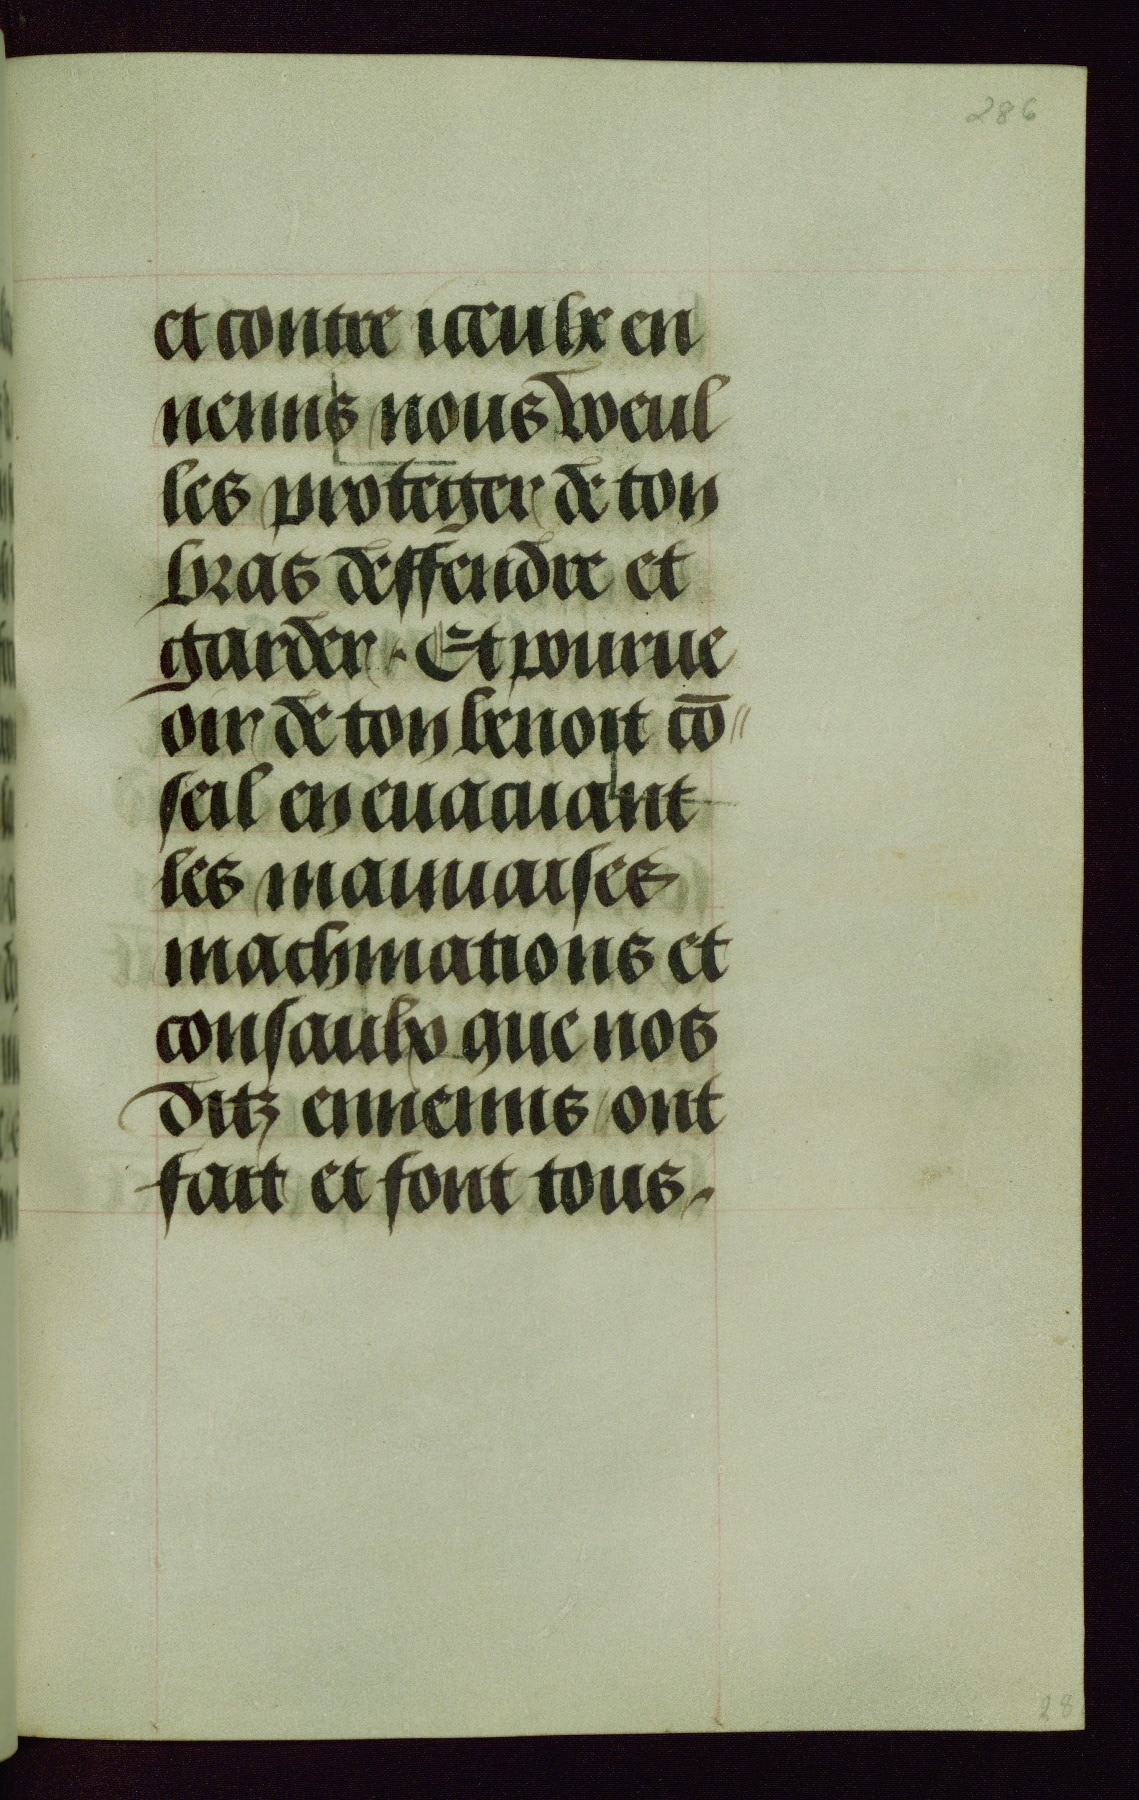 286
et contre iceulx en
nemis nous veul
les proteger de ton
bras deffendre et
garder. Et pourue
oir de ton benoit cō"
seil en euacuant
les mauuaises
machinations et
consaulx que nos
ditz ennemis ont
fait et font tous.
28